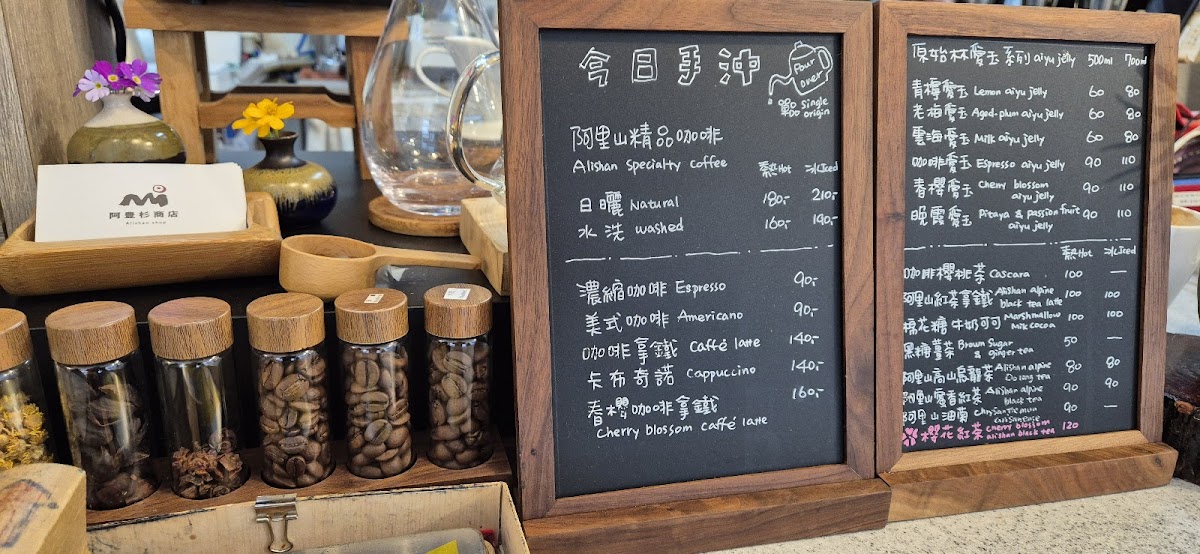 阿豊杉商店
Alishan shop
今日手沖
Pour over
單品 single origin
阿里山精品咖啡
Alishan Specialty Coffee 熱Hot 冰Iced
日曬 Natural 180,- 210,-
水洗 washed 160,- 190,-
濃縮咖啡 Espresso 90,-
美式咖啡 Americano 90,-
咖啡拿鐵 Caffé latte 140,-
卡布奇諾 Cappuccino 140,-
春櫻咖啡拿鐵 160,-
Cherry blossom caffé latte
原始林愛玉系列 aiyu jelly 500ml 700ml
青檸愛玉 Lemon aiyu jelly 60 80
老梅愛玉 Aged-plum aiyu jelly 60 80
雲海愛玉 Milk aiyu jelly 60 80
咖啡愛玉 Espresso aiyu jelly 90 110
春櫻愛玉 cherry blossom aiyu jelly 90 110
晚霞愛玉 Pitaya & passion fruit aiyu jelly 90 110
熱Hot 冰Iced
咖啡櫻桃茶 Cascara 100 —
阿里山紅茶拿鐵 Alishan alpine black tea latte 100 100
棉花糖牛奶可可 Marshmallow Milk cocoa 100 100
黑糖薑茶 Brown Sugar & ginger tea 50 —
阿里山高山烏龍茶 Alishan alpine Oolong tea 80 80
阿里山蜜香紅茶 Alishan alpine black tea 90 90
阿里山油菊 90 —
櫻花紅茶 cherry blossom alishan black tea 120